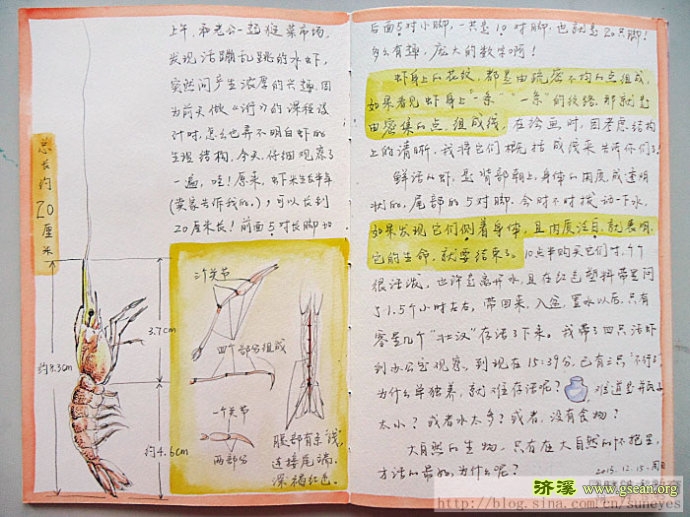 上午，和老公一起逛菜市场，
发现活蹦乱跳的水虾，
突然间产生浓厚的兴趣，因
为前天做《  》的课程设
计时，怎么也弄不明白虾的
生理结构，今天，仔细观察了
一遍，哇！原来，虾米生长半年
(卖家告诉我的)，可以长到
20厘米长！前面5对长脚加
总长约
20
厘米
约8.3cm
3.7cm
约4.6cm
三个关节
四个部分组成
一个关节
两部分
腹部有条线，
连接尾端，
深橘红色。
后面5对小脚，一共是10对脚，也就是20只脚！
多么有趣，庞大的数字啊！
虾身上的花纹，都是由疏密不均的点组成，
如果看见虾身上"一条""一条"的纹络，那就是
由密集的点组成线，在绘画时，因考虑结构
上的清晰，我将它们概括成线来告诉你们了！
鲜活的虾，是背部朝上，身体的肉度成透明
状的，尾部的5对脚，会时不时拨动一下水，
如果发现它们侧着身体，且肉质泛白，就表明，
它的生命，就要结束了。10点半购买它们时，个个
很活泼，也许是离开水，且在红色塑料带里闷
了1.5个小时左右，带回来，入盆，置水以后，只有
零星几个"壮汉"存活了下来。我带了四只活虾
到办公室观察，到现在15:39分，已有三只"不行了"
为什么单独养，就难存活呢？难道是瓶子
太小？或者水太多？或者，没有食物？
大自然的生物，只有在大自然的怀抱里，
才活的最好，为什么呢？
2013.12.15.周日
济溪
www.gsean.org
http://blog.sina.com.cn/suneyes